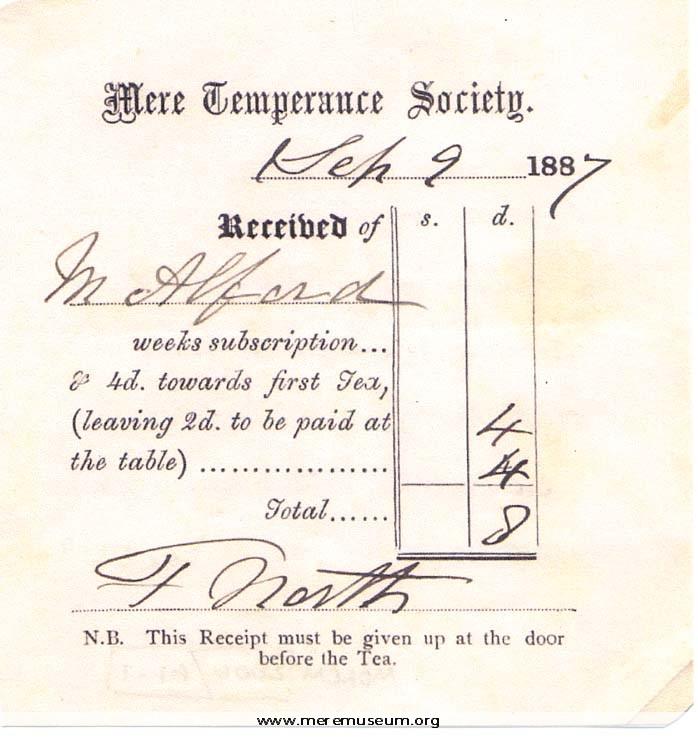 Mere Temperance Society.
Sep 9 1887
Received of s. d.
M Alford
weeks subscription...
& 4d. towards first Tea,
(leaving 2d. to be paid at 4
the table) .................. 4
Total...... 8
F North
N.B. This Receipt must be given up at the door
before the Tea.
www.meremuseum.org